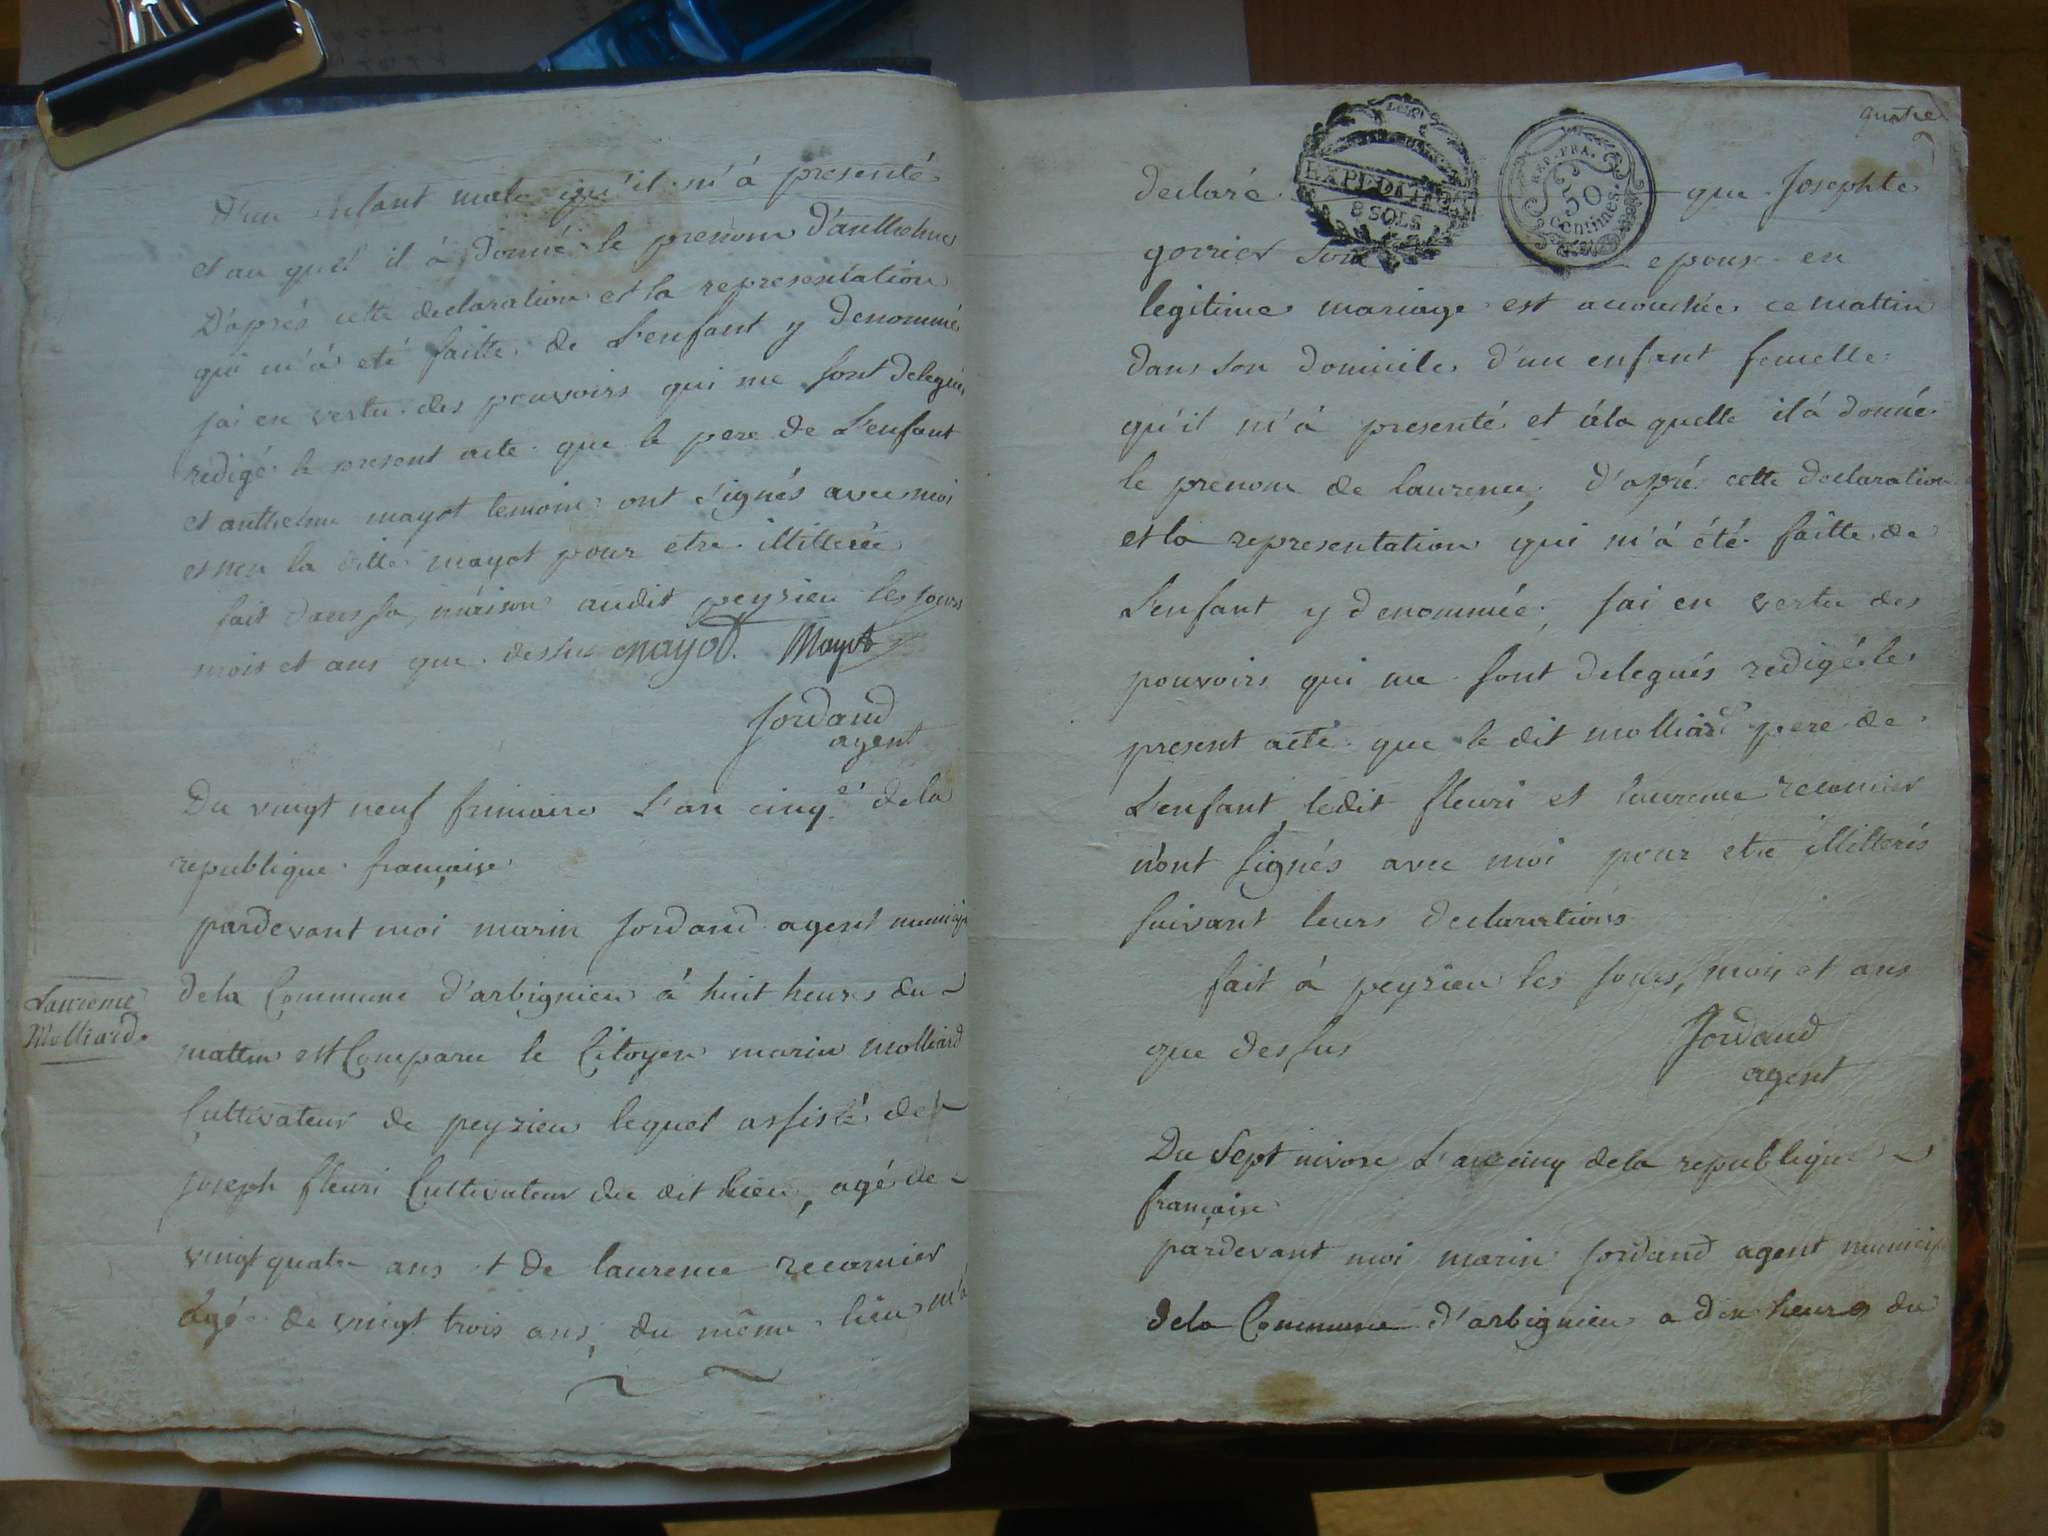 D'un enfant male qu'il m'à presenté
et au quel il à Donné le prenom d'anthelme
D'aprés cette declaration et la representation
qui m'à eté faitte de L'enfant y Denommé
jai en vertu des pouvoirs qui me sont delegués
redigé le present acte que le pere de L'enfant
et anthelme mayot temoin ont signés avec moi
et non la ditte mayot pour etre illitterée
fait dans sa maison audit peyzieu les jours
mois et ans que dessus mayot. Mayot
Jordand
agent
Du vingt neuf frimaire L'an cinq.e dela
republique française
pardevant moi marin Jordand agent municip
dela Commune d'arbignieu à huit heures du
mattin est Comparu le Citoyen marin molliard
Laurence
Molliard.
Cultivateur de peyzieu lequel assisté de
joseph fleuri Cultivateur du dit lieu, agé de
vingt quatre ans et de laurence recamier
agé de vingt trois ans, du même lieu m'à
quatre
declaré que Josephte
EXPEDITION
8 SOLS
REP. FRA.
50
Centimes.
gorrier son epouse en
legitime mariage est accouchée ce mattin
dans son domicile d'un enfant femelle
qu'il m'à presenté et àla quelle il à donné
le prenom de laurence, D'apré cette declaration
et la representation qui m'à été faitte de
L'enfant y denommée, Jai en vertu des
pouvoirs qui me sont delegués redigé le
present acte que le dit molliard pere de
L'enfant, ledit fleuri et laurence recamier
n'ont signés avec moi pour etre illitterés
suivant leurs declarations
fait à peyzieu les jours, mois et ans
que dessus Jordand
agent
Du Sept nivose L'an cinq dela republique
française
pardevant moi marin Jordand agent municip
dela Commune d'arbignieu a dix heures du